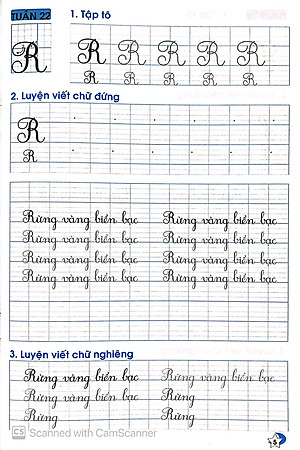 TUẦN 22
1. Tập tô
R R R R R R
R R R R R
2. Luyện viết chữ đứng
R
R
Rừng vàng biển bạc Rừng vàng biển bạc
Rừng vàng biển bạc Rừng vàng biển bạc
Rừng vàng biển bạc Rừng vàng biển bạc
Rừng vàng biển bạc Rừng vàng biển bạc
3. Luyện viết chữ nghiêng
Rừng vàng biển bạc Rừng vàng biển bạc
Rừng vàng biển bạc Rừng
Rừng Rừng
CS Scanned with CamScanner